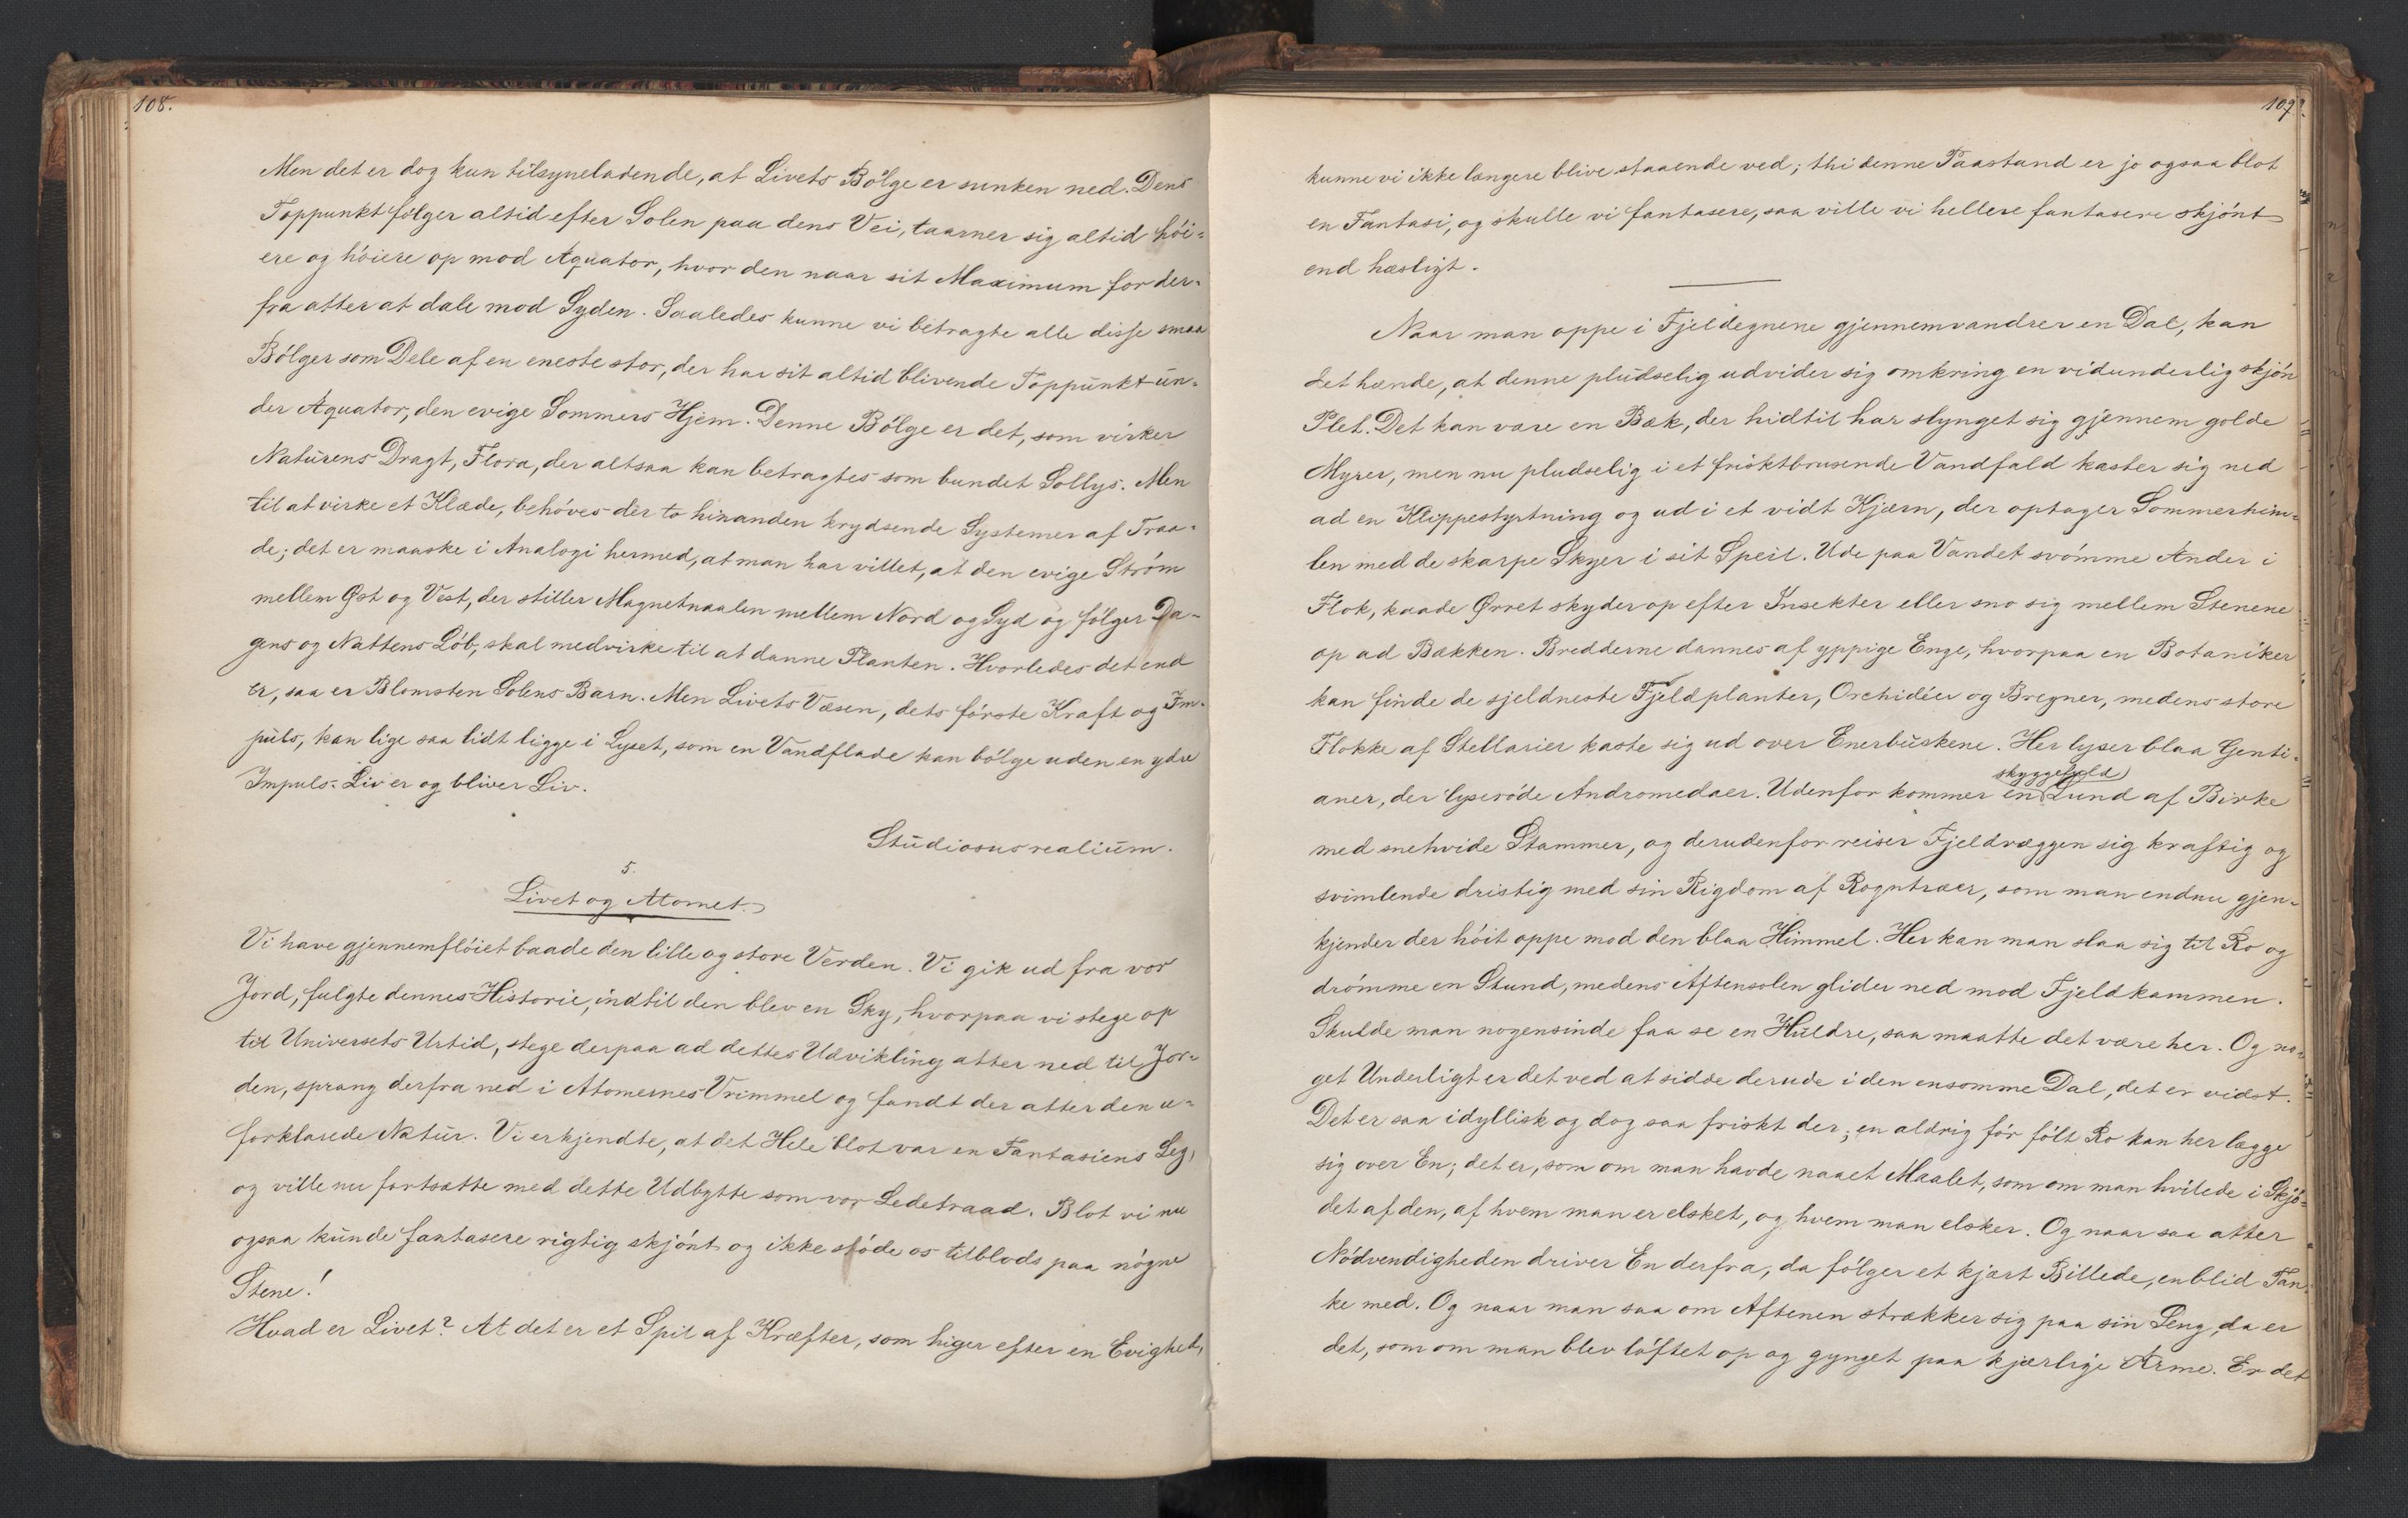 108.
Men det er dog kun tilsyneladende, at Livets Bölge er sunken ned. Dens
Toppunkt fölger altid efter Solen paa dens Vei, taarner sig altid höi-
ere og höiere op mod Äquator, hvor den naar sit Maximum for der-
fra atter at dale mod Syden. Saaledes kunne vi betragte alle disse smaa
Bölger som Dele af en eneste stor, der har sit altid blivende Toppunkt un-
der Äquator, den evige Sommers Hjem. Denne Bölge er det, som virker
Naturens Dragt, Flora, der altsaa kan betragtes som bundet Sollys. Men
til at virke et Klæde, behöves der to hinanden krydsende Systemer af Traa-
de; det er maaske i Analogi hermed, at man har villet, at den evige Ström
mellem Øst og Vest, der stiller Magnetnaalen mellem Nord og Syd og fölger Da-
gens og Nattens Löb, skal medvirke til at danne Planten. Hvorledes det end
er, saa er Blomsten Solens Barn. Men Livets Væsen, dets förste Kraft og Im-
puls, kan lige saa lidt ligge i Lyset, som en Vandflade kan bölge uden en ydre
Impuls. Liv er og bliver Liv.
Studiosus realium.
5.
Livet og Atomet.
Vi have gjennemflöiet baade den lille og store Verden. Vi gik ud fra vor
Jord, fulgte dennes Historie, indtil den blev en Sky, hvorpaa vi stege op
til Universets Urtid, stege derpaa ad dettes Udvikling atter ned til Jor-
den, sprang derfra ned i Atomernes Vrimmel og fandt der atter den u-
forklarede Natur. Vi erkjendte, at det Hele blot var en Fantasiens Leg,
og ville nu fortsætte med dette Udbytte som vor Ledetraad. Blot vi nu
ogsaa kunde fantasere rigtig skjönt og ikke stöde os tilblods paa nögne
Stene!
Hvad er Livet? At det er et Spil af Kræfter, som higer efter en Evighed,
109.
kunne vi ikke længere blive staaende ved; thi denne Paastand er jo ogsaa blot
en Fantasi, og skulle vi fantasere, saa ville vi hellere fantasere skjönt
end hæsligt.
Naar man oppe i Fjeldegnene gjennemvandrer en Dal, kan
det hænde, at denne pludselig udvider sig omkring en vidunderlig skjön
Plet. Det kan være en Bæk, der hidtil har slynget sig gjennem golde
Myrer, men nu pludselig i et frisktbrusende Vandfald kaster sig ned
ad en Klippestyrtning og ud i et vidt Kjærn, der optager Sommerhim-
len med de skarpe Skyer i sit Speil. Ude paa Vandet svömme Änder i
Flok, kaade Ørret skyder op efter Insekter eller sno sig mellem Stenene
op ad Bækken. Bredderne dannes af yppige Enge, hvorpaa en Botaniker
kan finde de sjeldneste Fjeldplanter, Orchidéer og Bregner, medens store
Flokke af Stellarier kaste sig ud over Enerbuskene. Her lyser blaa Genti-
skyggefuld
aner, der lyseröde Andromedaer. Udenfor kommer en Lund af Birke
med snehvide Stammer, og derudenfor reiser Fjeldvæggen sig kraftig og
svimlende dristig med sin Rigdom af Rogntræer, som man endnu gjen-
kjender der höit oppe mod den blaa Himmel. Her kan man slaa sig til Ro og
drömme en Stund, medens Aftensolen glider ned mod Fjeldkammen.
Skulde man nogensinde faa se en Huldre, saa maatte det være her. Og no-
get Underligt er det ved at sidde derude i den ensomme Dal, det er vidst.
Det er saa idyllisk og dog saa friskt der; en aldrig för fölt Ro kan her lægge
sig over En; det er, som om man havde naaet Maalet, som om man hvilede i Skjö-
det af den, af hvem man er elsket, og hvem man elsker. Og naar saa atter
Nödvendigheden driver En derfra, da fölger et kjært Billede, en blid Tan-
ke med. Og naar man saa om Aftenen strækker sig paa sin Seng, da er
det, som om man blev löftet op og gynget paa kjærlige Arme. Er det